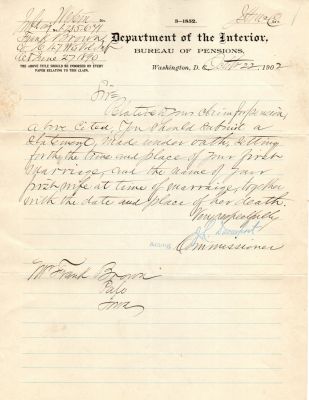 3-1852.
Department of the Interior,
BUREAU OF PENSIONS,
Frank Brown
Act June 27, 1890
THE ABOVE TITLE SHOULD BE INDORSED ON EVERY
PAPER RELATING TO THE CLAIM.
Washington, D. C. 22, 1902
Sir,
Relative to your claim for pension,
above cited, you should submit a
statement, made under oath, setting
forth the time and place of your first
marriage, and the name of your
first wife at time of marriage, together
with the date and place of her death.
Very respectfully
J. L. Davenport
ACTING Commissioner
Mr Frank Brown
Palo
Iowa